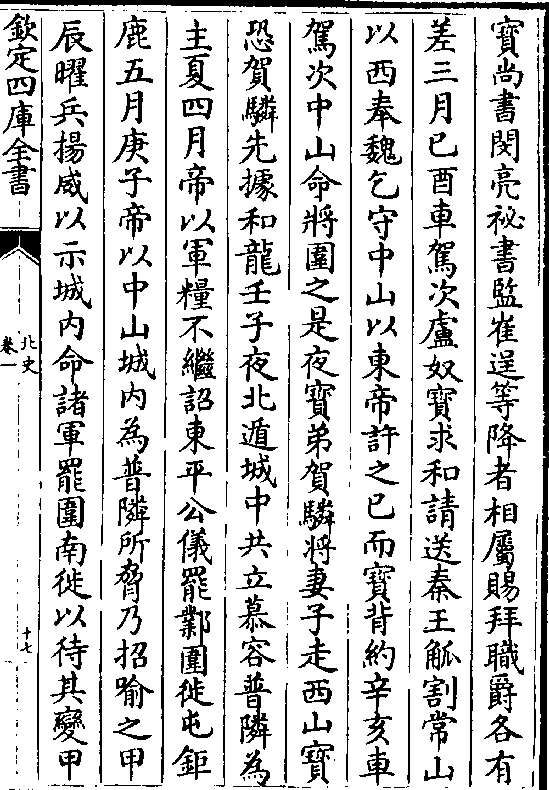 寶尚書閔亮祕書監崔逞等降者相屬賜拜職爵各有
差三月已酉車駕次盧奴寶求和請送秦王觚割常山
以西奉魏乞守中山以東帝許之已而寶背約辛亥車
駕次中山命將圍之是夜寶弟賀驎將妻子走西山寶
恐賀驎先據和龍壬子夜北遁城中共立慕容普隣為
主夏四月帝以軍糧不繼詔東平公儀罷鄴圍徙屯鉅
鹿五月庚子帝以中山城内為普隣所脅乃招喻之甲
辰曜兵揚威以示城内命諸軍罷圍南徙以待其變甲
欽定四庫全書
北史
卷一
十七